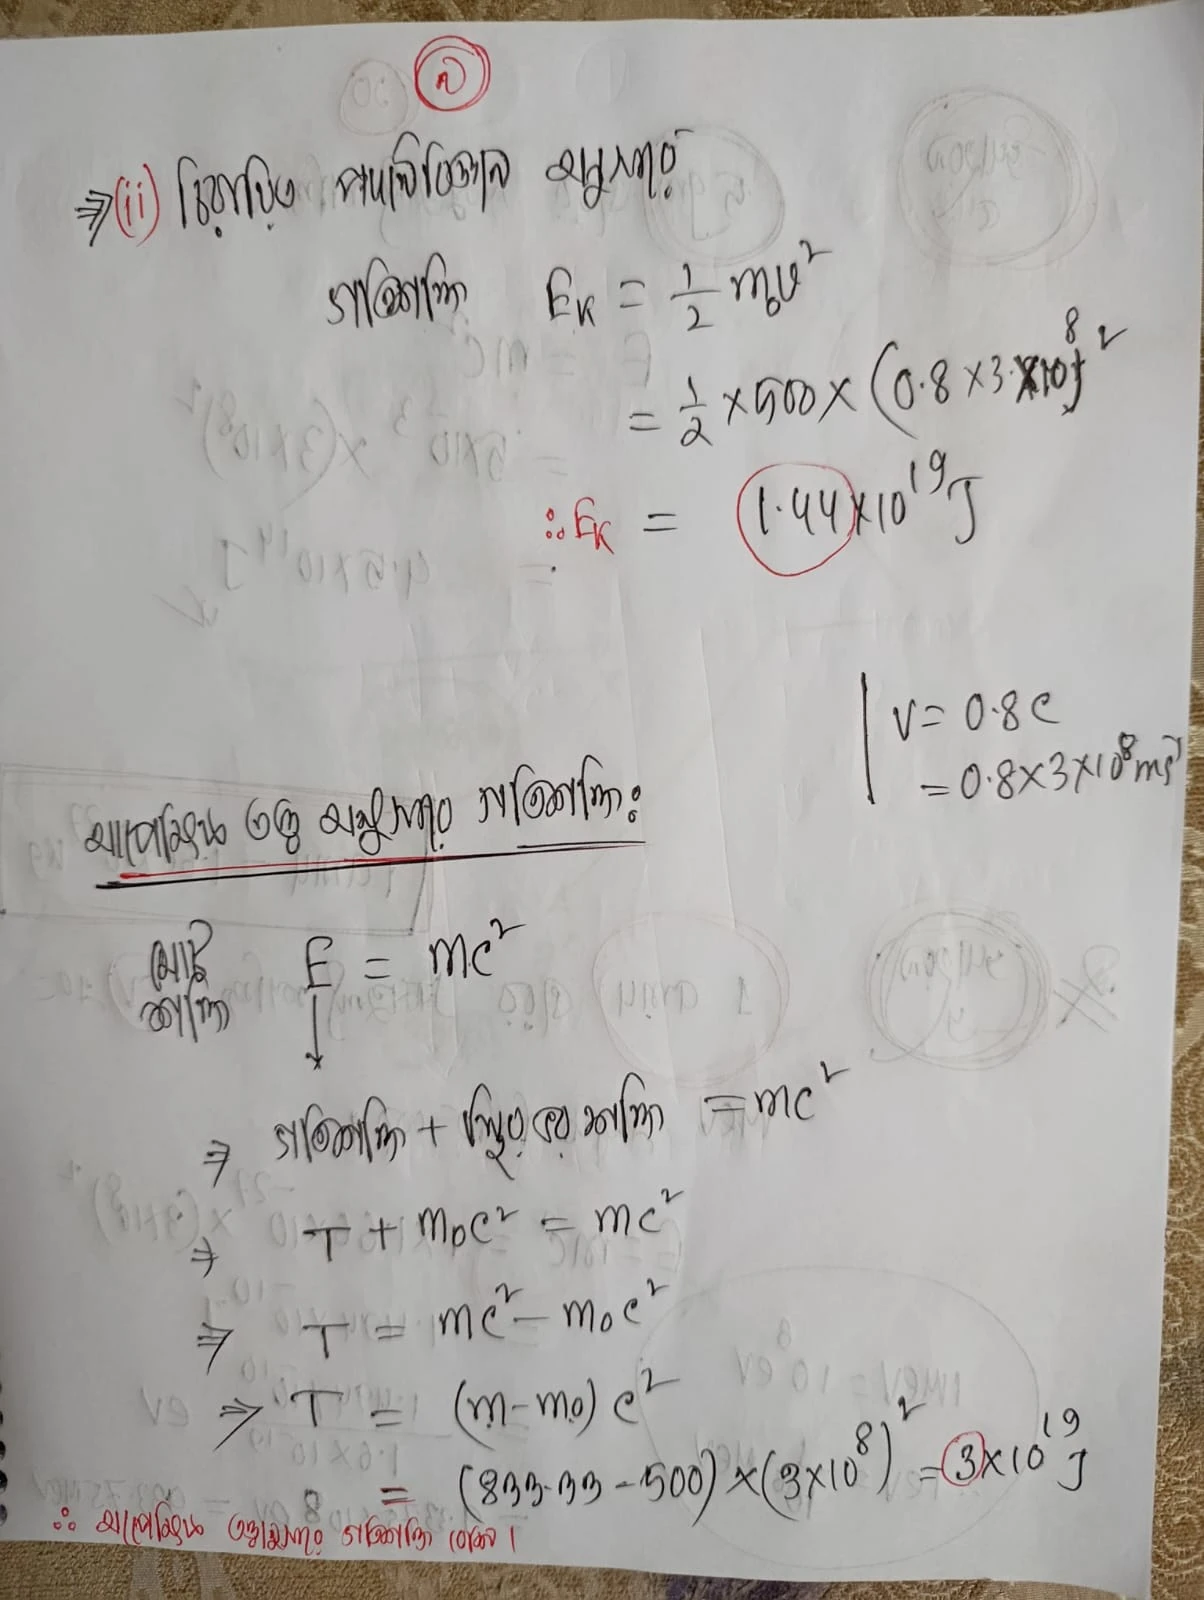 ৯
⇒(ii) চিরায়ত পদার্থবিজ্ঞান অনুসারে
গতিশক্তি E_K = 1/2 m₀v²
= 1/2 × 500 × (0.8 × 3 × 10⁸)²
∴ E_K = 1.44 × 10¹⁹ J
v = 0.8c
= 0.8 × 3 × 10⁸ ms⁻¹
আপেক্ষিক তত্ত্ব অনুসারে গতিশক্তি:
মোট শক্তি E = mc²
⇒ গতিশক্তি + স্থির শক্তি = mc²
⇒ T + m₀c² = mc²
⇒ T = mc² − m₀c²
⇒ T = (m − m₀) c²
= (833.33 − 500) × (3 × 10⁸)² = 3 × 10¹⁹ J
∴ আপেক্ষিক তত্ত্বানুসারে গতিশক্তি বেশি।